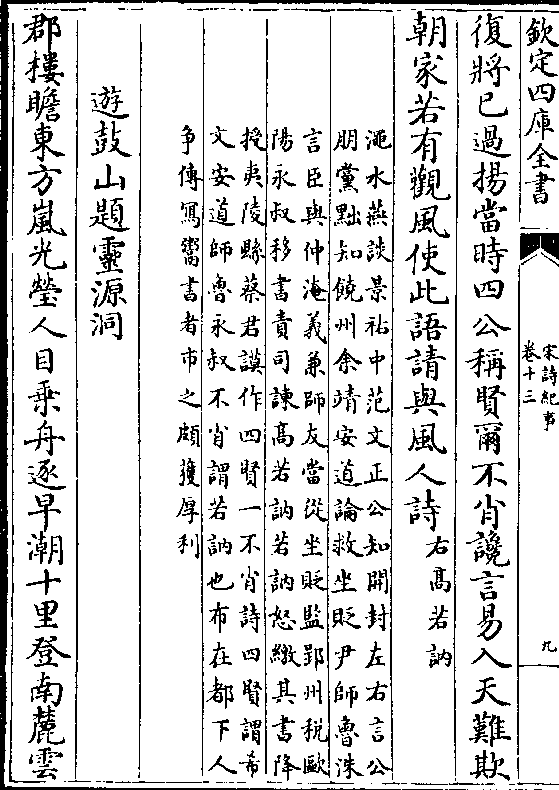 欽定四庫全書
宋詩紀事
卷十三
九
復將已過揚當時四公稱賢爾不肖讒言易入天難欺
朝家若有觀風使此語請與風人詩
右髙若訥
澠水燕談景祐中范文正公知開封左右言公
朋黨黜知饒州余靖安道論救坐貶尹師魯洙
言臣與仲淹義兼師友當從坐貶監郢州稅歐
陽永叔移書責司諫髙若訥若訥怒繳其書降
授夷陵縣蔡君謨作四賢一不肖詩四賢謂希
文安道師魯永叔不肖謂若訥也布在都下人
争傳寫鬻書者市之頗獲厚利
遊鼓山題靈源洞
郡樓瞻東方嵐光瑩人目乗舟逐早潮十里登南麓雲